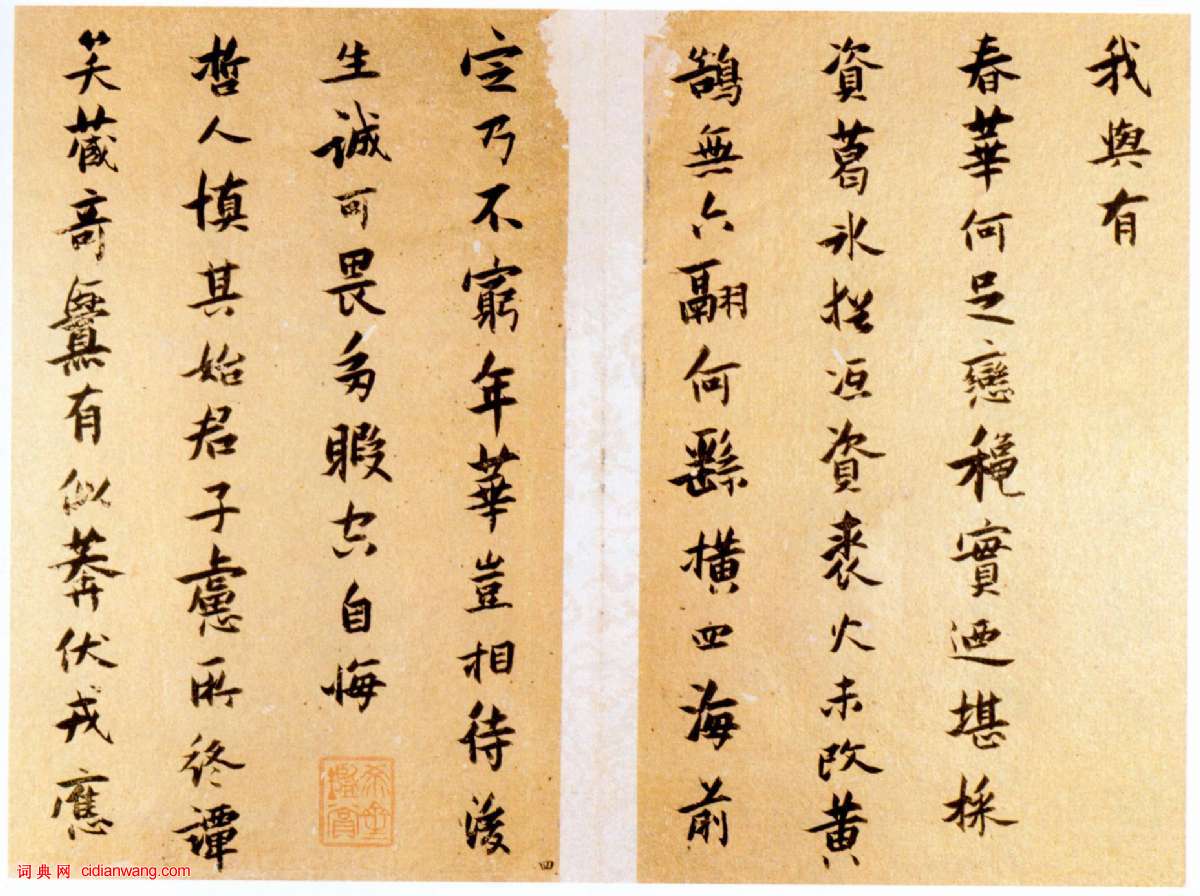 我與有
春華何足戀穐實迺堪採
資葛氷冱資裘火未改黄
鵠無六翮何繇橫四海前
定乃不窮年華豈相待後
生誠可畏多暇空自悔
哲人慎其始君子慮所終譚
笑蔵竒釁有似莽伏戎應
四
词典网 cidianwang.com